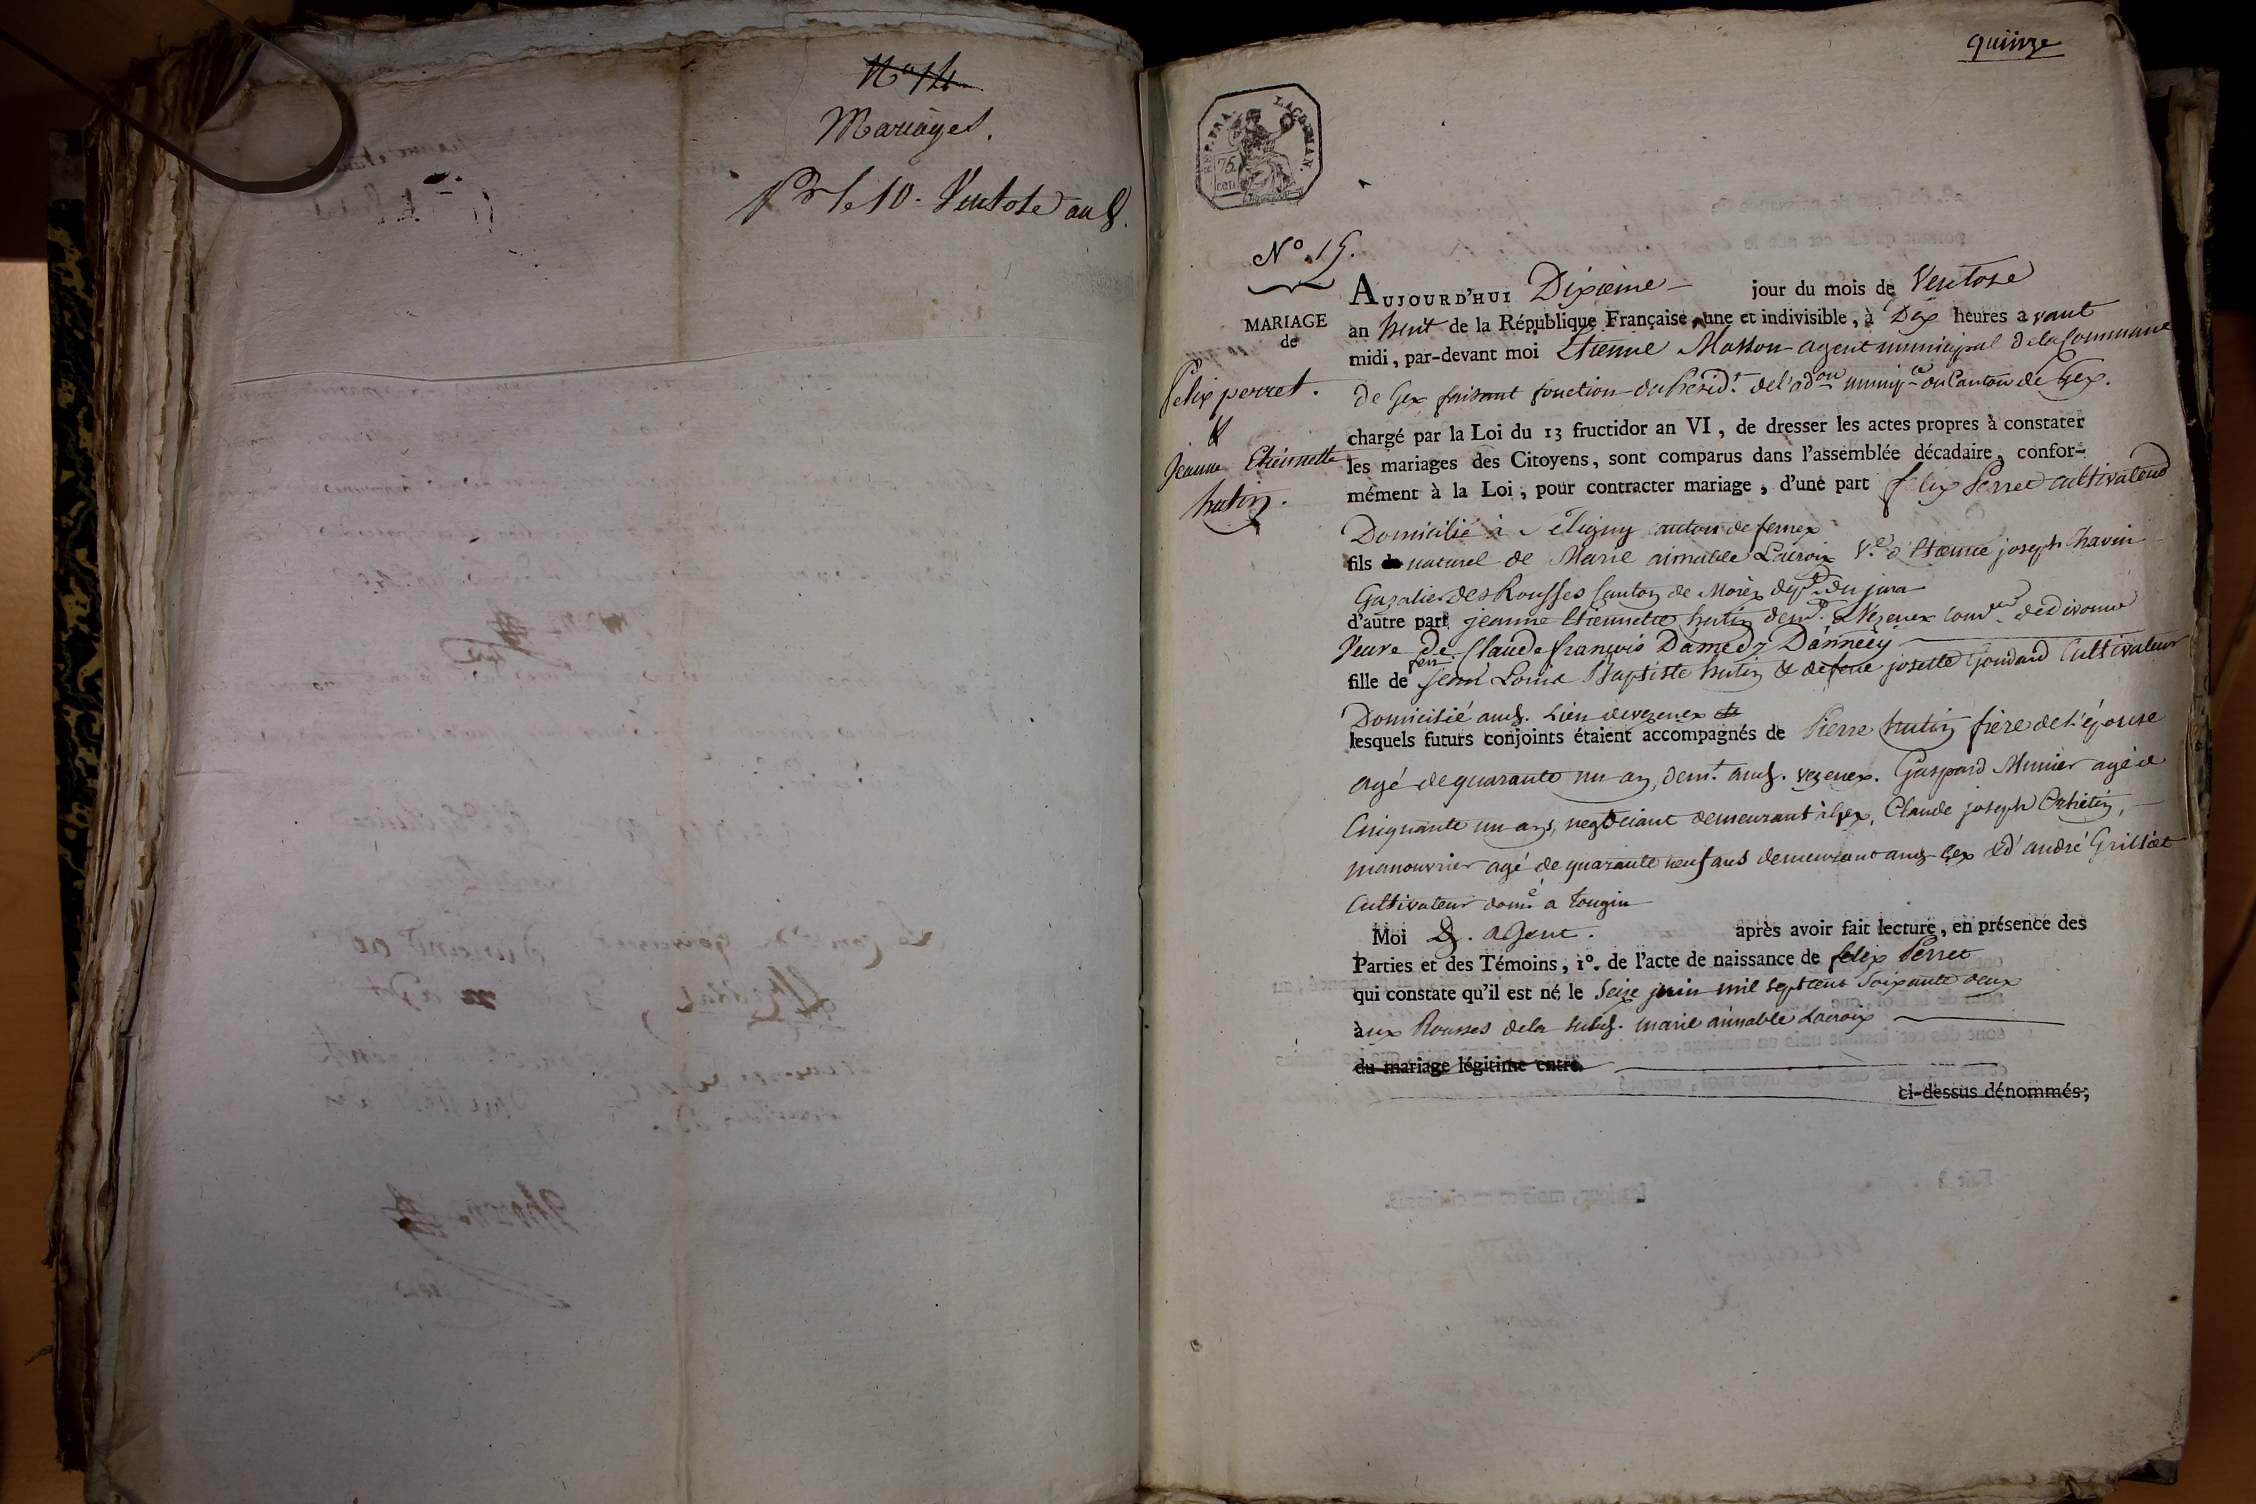 N° 14
Mariages.
Pr le 10 - Ventose an 8.
quinze
REP. FRA.
75 cen
N°. 15.
MARIAGE
de
felix perret.
&
Jeanne Etiennette
hutin.
AUJOURD'HUI Dixieme — jour du mois de Ventose
an huit de la République Française, une et indivisible, à Dix heures avant
midi, par-devant moi Etienne Masson agent municipal de la Commune
de Gex faisant fonction du Présidt. de l'adon munipce du Canton de Gex.
chargé par la Loi du 13 fructidor an VI, de dresser les actes propres à constater
les mariages des Citoyens, sont comparus dans l'assemblée décadaire, confor-
mément à la Loi, pour contracter mariage, d'une part felix Perret cultivateur
Domicilié à Seligny canton de fernex
fils naturel de Marie aimable Lacroix Ve. d'Etienne joseph
des Rousses Canton de Morez dept. du jura
d'autre part jeanne Etiennette hutin demt. à Vezenex Comune de divonne
Veuve de Claude françois
fille de feu Jean Louis Baptiste hutin & de feue josette Goudard Cultivateur
Domicilié auds. Lieu de vezenex
lesquels futurs conjoints étaient accompagnés de Pierre hutin frère de l'épouse
agé de quarante un an, demt. auds. vezenex. Gaspard Munier agé de
Cinquante un ans, negociant demeurant à Gex, Claude joseph
manouvrier agé de quarante neuf ans demeurant aud. Gex & d'andré Grillet
Cultivateur domé. a Tougin
Moi ds. agent. après avoir fait lecture, en présence des
Parties et des Témoins, 1°. de l'acte de naissance de felix Perret
qui constate qu'il est né le Seize juin mil sept cent Soixante deux
aux Rousses de la susds. marie aimable Lacroix
du mariage légitime entre
ci-dessus dénommés;